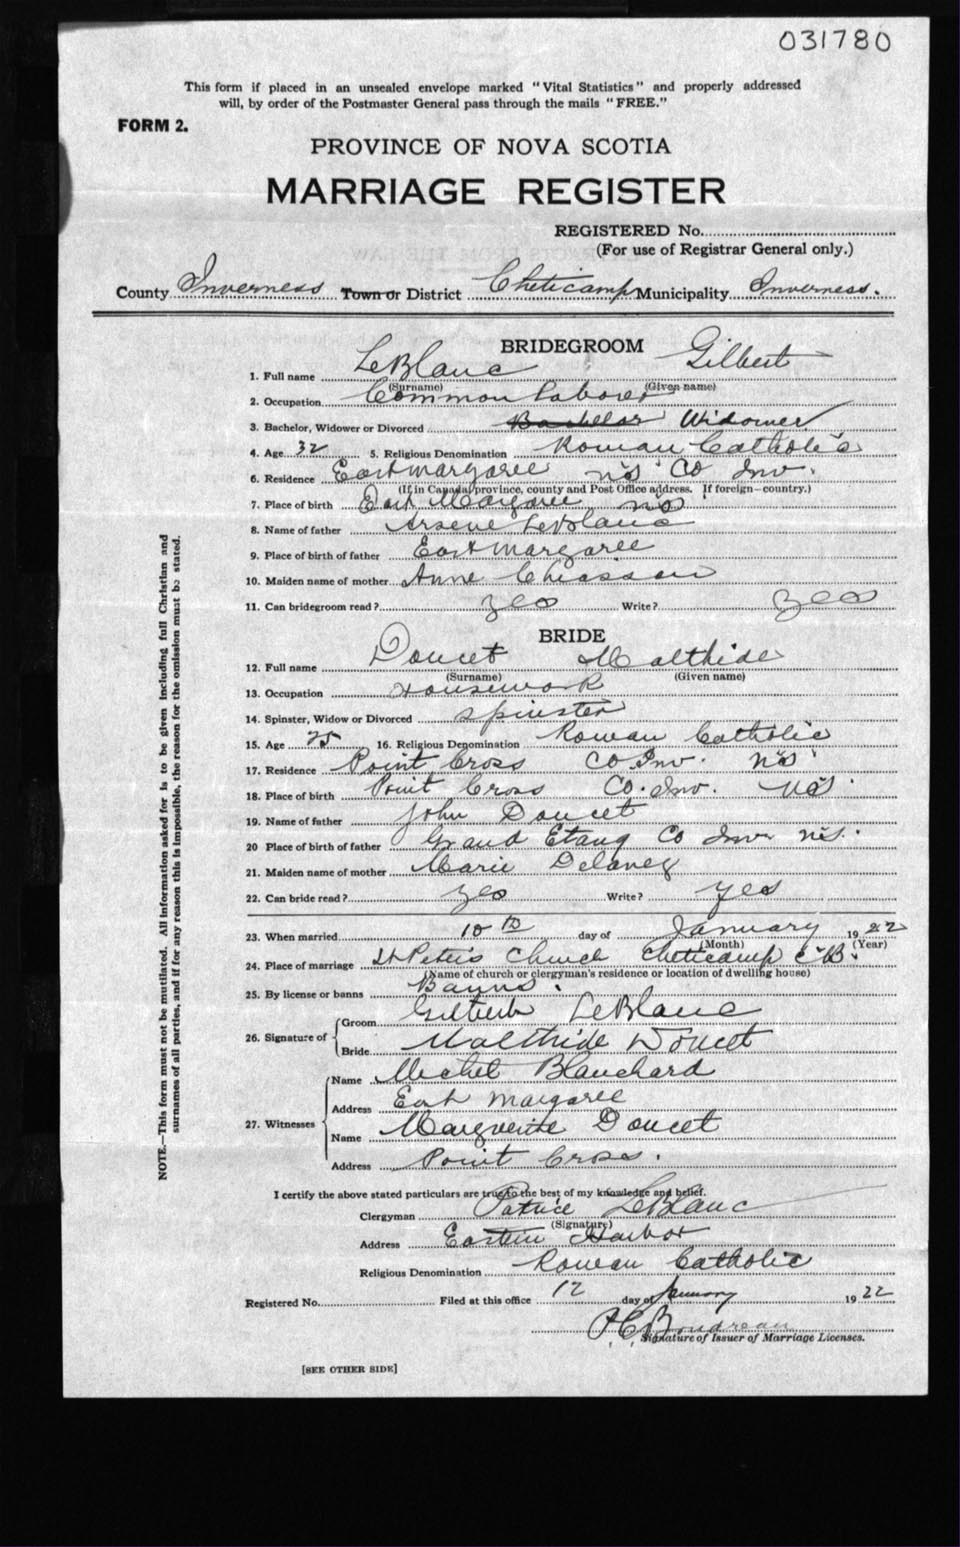 031780
This form if placed in an unsealed envelope marked "Vital Statistics" and properly addressed
will, by order of the Postmaster General pass through the mails "FREE."
FORM 2.
PROVINCE OF NOVA SCOTIA
MARRIAGE REGISTER
REGISTERED No.
(For use of Registrar General only.)
County Inverness Town or District Cheticamp Municipality Inverness.
BRIDEGROOM
1. Full name LeBlanc Gilbert
(Surname) (Given name)
2. Occupation Common Laborer
3. Bachelor, Widower or Divorced Bachelor Widower
4. Age 32 5. Religious Denomination Roman Catholic
6. Residence East Margaree NS Co Inv.
(If in Canada, province, county and Post Office address. If foreign—country.)
7. Place of birth East Margaree NS
8. Name of father Arsene LeBlanc
9. Place of birth of father East Margaree
10. Maiden name of mother Anne Chiasson
11. Can bridegroom read? yes Write? yes
BRIDE
12. Full name Doucet Malthide
(Surname) (Given name)
13. Occupation Housework
14. Spinster, Widow or Divorced Spinster
15. Age 25 16. Religious Denomination Roman Catholic
17. Residence Point Cross Co Inv. NS
18. Place of birth Point Cross Co. Inv. NS.
19. Name of father John Doucet
20 Place of birth of father Grand Etang Co Inv NS.
21. Maiden name of mother Marie Delaney
22. Can bride read? yes Write? yes
23. When married 10th day of January 1922
(Month) (Year)
24. Place of marriage St Peter's Church Cheticamp C.B.
(Name of church or clergyman's residence or location of dwelling house)
25. By license or banns Banns.
26. Signature of
Groom Gilbert LeBlanc
Bride Malthide Doucet
27. Witnesses
Name Michel Blanchard
Address East Margaree
Name Marguerite Doucet
Address Point Cross.
I certify the above stated particulars are true to the best of my knowledge and belief.
Clergyman Patrice LeBlanc
(Signature)
Address Eastern Harbor
Religious Denomination Roman Catholic
Registered No. Filed at this office 12 day of January 1922
P.C. Boudreau
Signature of Issuer of Marriage Licenses.
[SEE OTHER SIDE]
NOTE.—This form must not be mutilated. All information asked for is to be given including full Christian and
surnames of all parties, and if for any reason this is impossible, the reason for the omission must be stated.